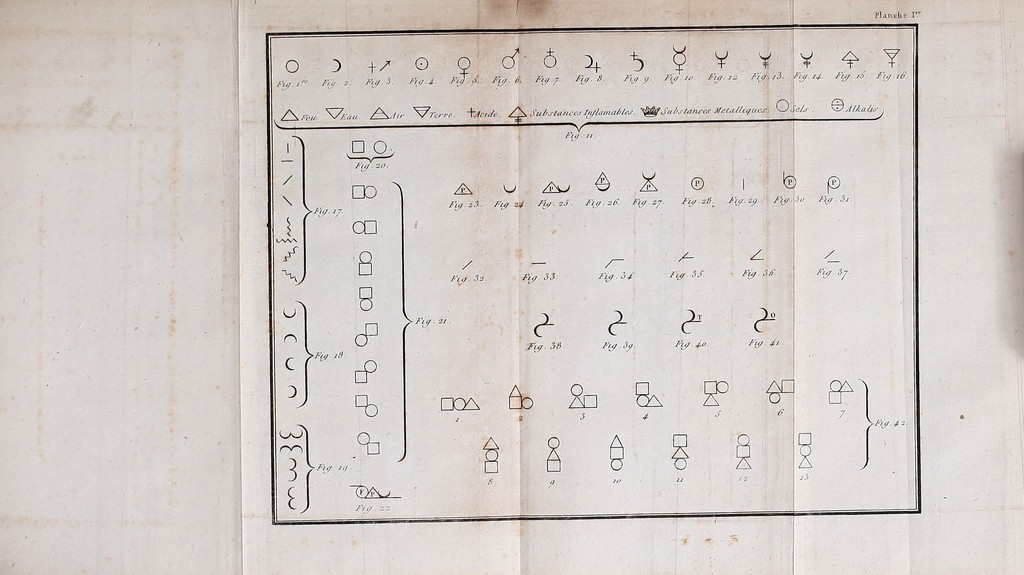 Planche I.ere
Fig. 1.re Fig. 2. Fig. 3. Fig. 4. Fig. 5. Fig. 6. Fig. 7. Fig. 8. Fig. 9. Fig. 10. Fig. 12. Fig. 13. Fig. 14. Fig. 15. Fig. 16.
Feu. Eau. Air Terre. Acide. Substances Inflamables. Substances Métalliques. Sels. Alkalis
Fig. 11.
Fig. 20.
Fig. 17.
P P P P P P P
Fig. 23. Fig. 24. Fig. 25. Fig. 26. Fig. 27. Fig. 28. Fig. 29. Fig. 30. Fig. 31.
Fig. 32. Fig. 33. Fig. 34. Fig. 35. Fig. 36. Fig. 37.
Fig. 21.
T O
Fig. 38 Fig. 39. Fig. 40. Fig. 41.
Fig. 18.
1 2 3 4 5 6 7
Fig. 42.
Fig. 19.
8 9 10 11 12 13
P P
Fig. 22